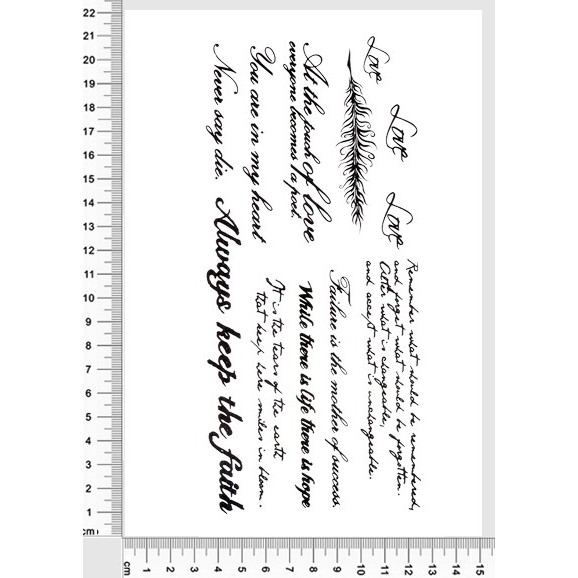 Love
Love
Love
Remember what should be remembered,
and forget what should be forgotten.
Alter what is changeable,
and accept what is unchangeable.
Failure is the mother of success.
At the touch of love
everyone becomes a poet.
While there is life there is hope
You are in my heart
It is the tears of the earth
that keep here smiles in bloom.
Never say die.
Always keep the faith
22
21
20
19
18
17
16
15
14
13
12
11
10
9
8
7
6
5
4
3
2
1
cm
cm 1 2 3 4 5 6 7 8 9 10 11 12 13 14 15